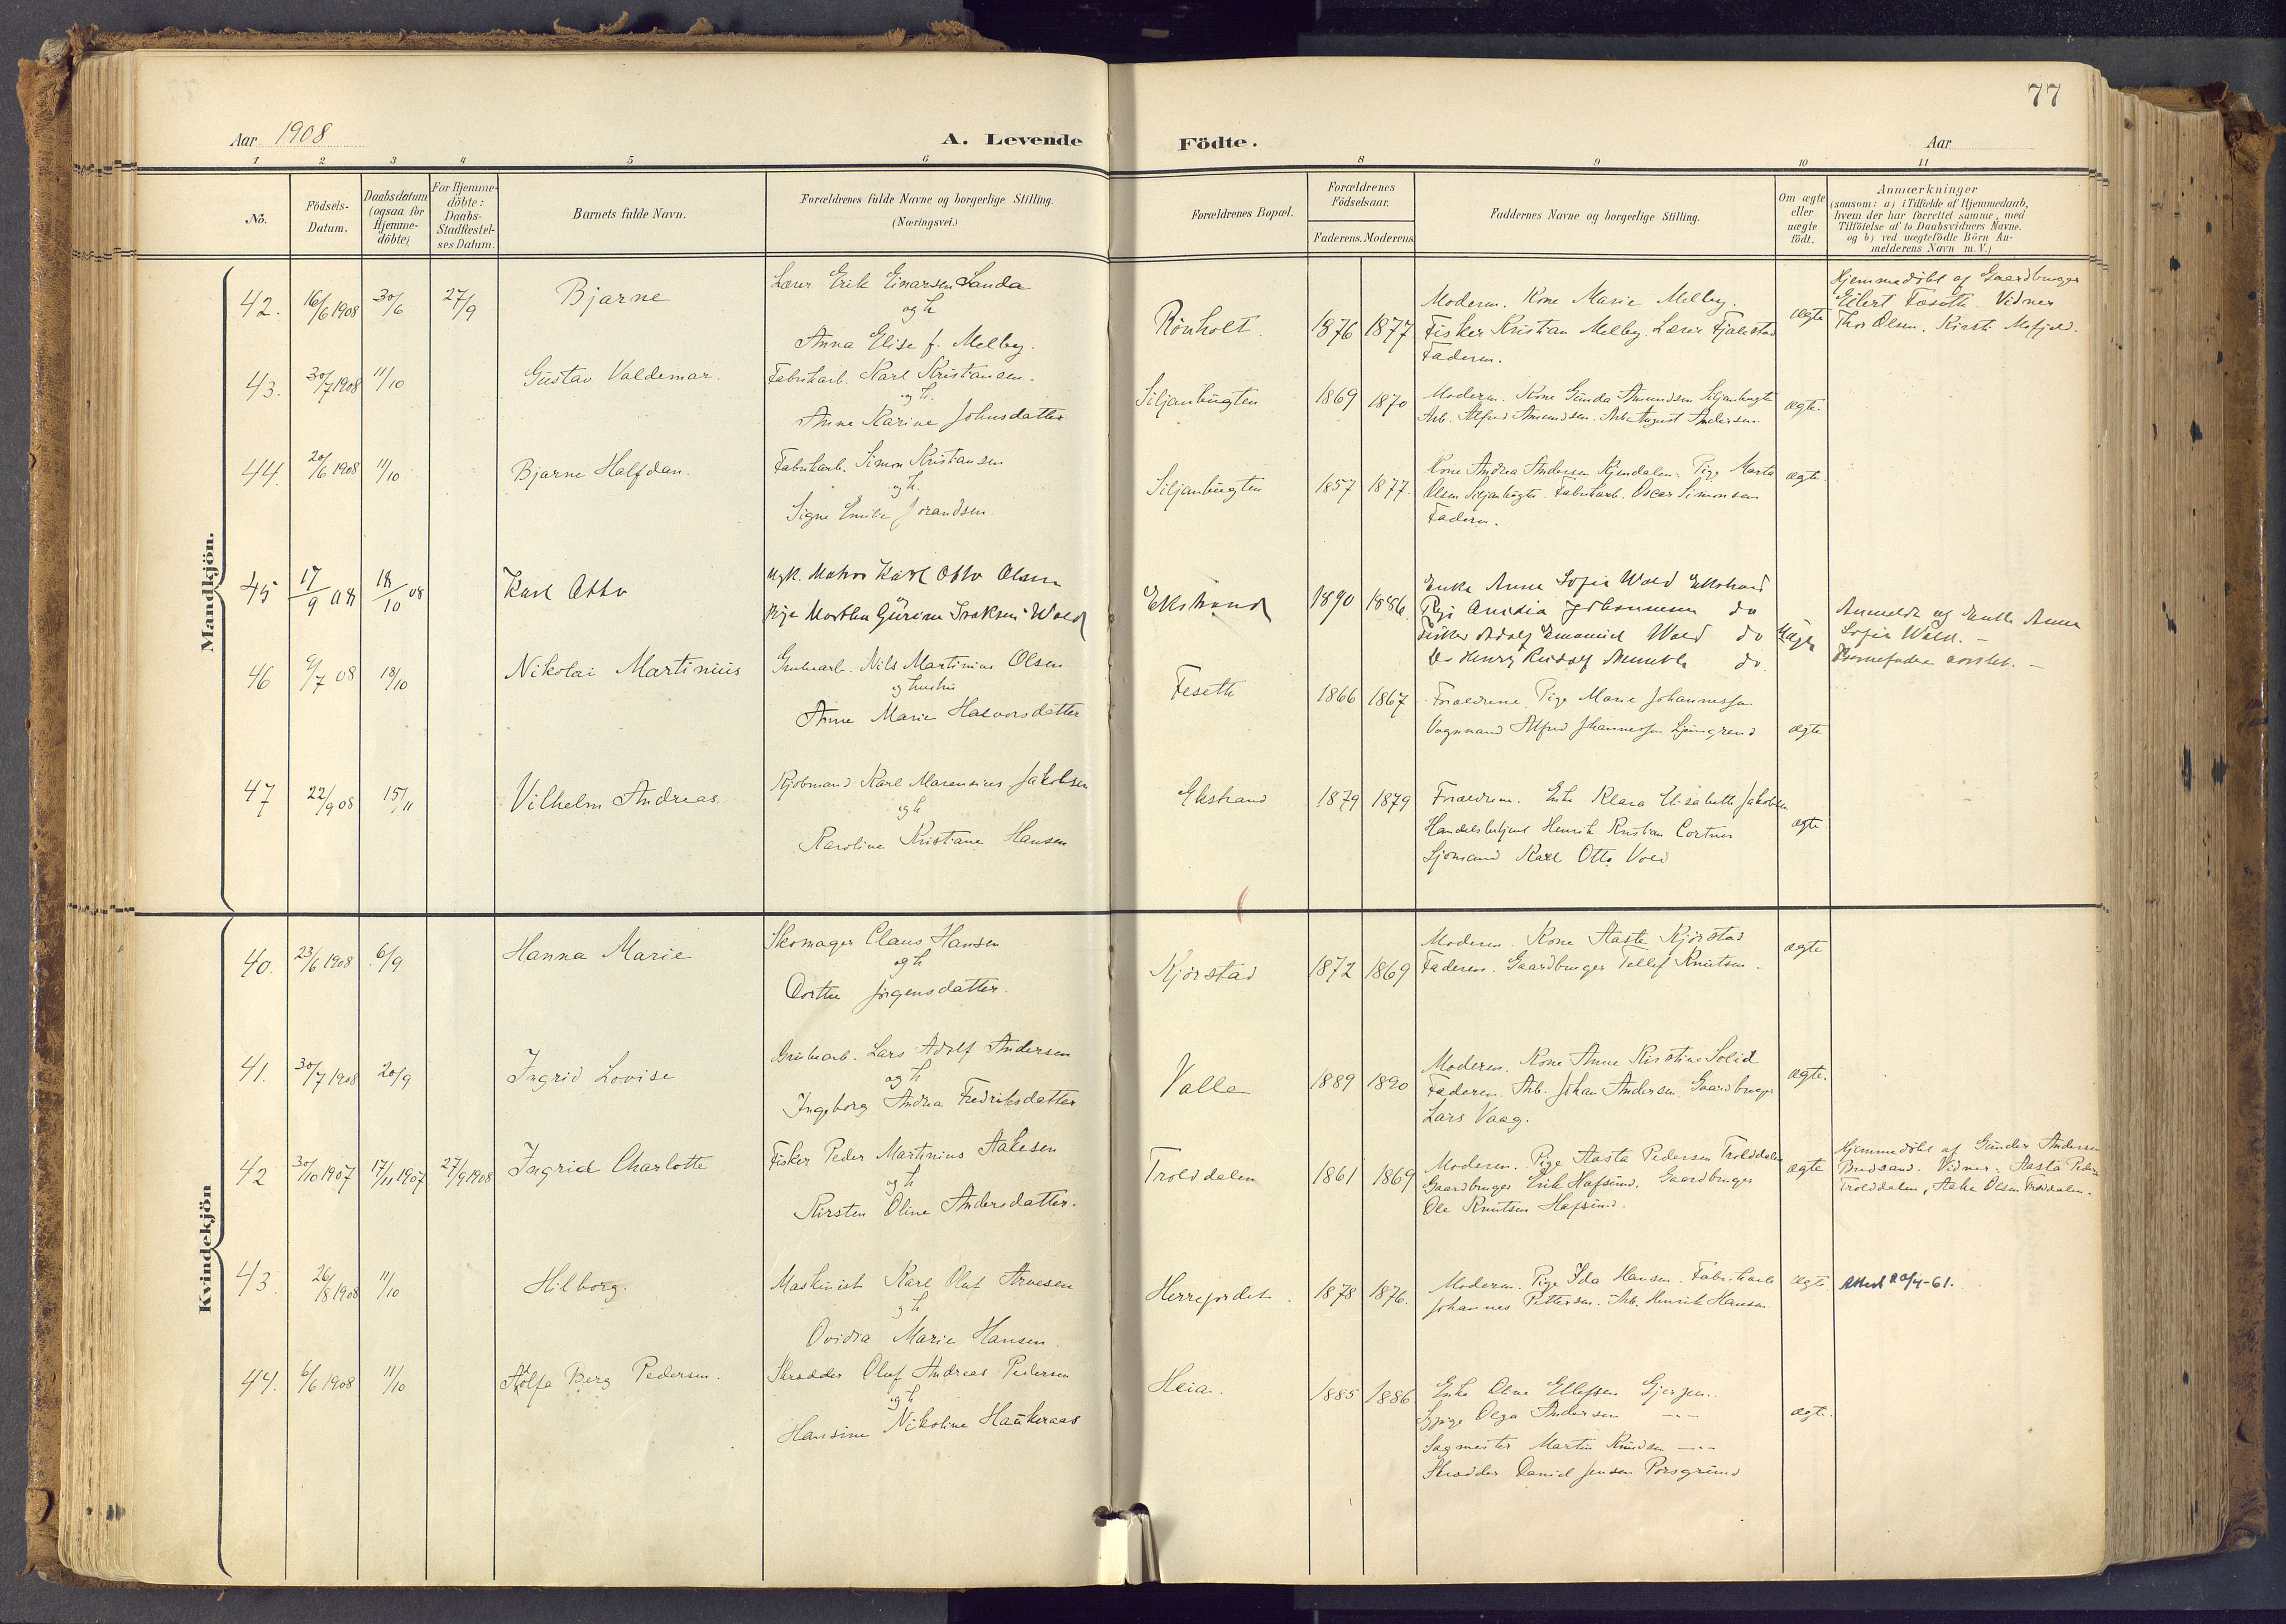 77
Aar 1908
A. Levende
Födte.
Aar
1 2 3 4 5 6 8 9 10 11
No.
Födsels-
Datum.
Daabsdatum
(ogsaa for
Hjemme-
döbte)
For Hjemme-
döbte:
Daabs-
Stadfæstel-
ses Datum.
Barnets fulde Navn.
Forældrenes fulde Navne og borgerlige Stilling.
(Næringsvei.)
Forældrenes Bopæl.
Forældrenes
Födselsaar.
Faderens. Moderens.
Faddernes Navne og borgerlige Stilling.
Om ægte
eller
uægte
födt.
Anmærkninger
(saasom: a) i Tilfælde af Hjemmedaab,
hvem der har forrettet samme, med
Tilföielse af to Daabsvidners Navne.
og b) ved uægtefödte Börn An-
melderens Navn m. V.)
Mandkjön.
42. 16/6 1908 30/6 27/9 Bjarne
Lærer Erik Einarsen Landa
og h
Anna Elise f. Melby.
Rönholt 1876 1877
Moderen. Kone Marie Melby.
Fisker Kristian Melby. Lærer Fjalestad
Faderen.
ægte
Hjemmedöbt af Gaardbruger
Eilert Fæseth. Vidner
Thor Olsen, Kirsti Mofjeld.
43. 30/7 1908 11/10 Gustav Valdemar.
Fabrikarb. Karl Kristiansen.
og h.
Anne Karine Johnsdatter
Siljanbugten 1869 1870
Moderen. Kone Gunda Amundsen Siljanbugte
Arb. Alfred Amundsen. Arb. August Andersen.
ægte.
44. 20/6 1908 11/10 Bjarne Halfdan.
Fabrikarb. Simon Kristiansen
og h.
Signe Emilie
Siljanbugten 1857 1877.
Kone Andrea Andersen Kjendalen. Pige Marta
Olsen Siljanbugte. Fabrikarb. Oscar Simonsen
Faderen.
ægte.
45 17/9 08 18/10 08 Karl Otto
Ugk. Matros Karl Otto Olsen
og
Pige Marthea Gurine Isaksen Wold
Ekstrand 1890 1886
Enke Anne Sofie Wold Ekstrand
Pige Johannesen do
Fisker Adolf Emanuel Wold do
Do Henry Rudolf do.
Uægte
Anmeldt af Enke Anne
Sofie Wold. –
Barnefader
46 9/7 08 18/10 Nikolai Martinius
Grubearb. Nils Martinius Olsen
og hustru
Anne Marie Halvorsdatter
Feseth 1866 1867
Forældrene. Pige Marie Johannessen
Vognmand Alfred Johannessen
ægte
47 22/9 08 15/11 Vilhelm Andreas
Kjöbmand Karl Marensius Jakobsen
og h
Karoline Kristiane Hansen
Ekstrand 1879 1879
Forældrene. Enke Klara Elisabeth Jakobsen
Handelsbetjent Henrik Kristian Cortner
Sjömand Karl Otto Vold
ægte
Kvindekjön
40. 23/6 1908 6/9 Hanna Marie
Skomager Claus Hansen
og h
Dorthe Jörgensdatter.
Kjörstad 1872 1869
Moderen. Kone Aaste Kjörstad
Faderen. Gaardbruger Tellef Knutsen.
ægte
41. 30/7 1908 20/9 Ingrid Lovise
Grubearb. Lars Adolf Andersen
og h
Ingeborg Andrea Fredriksdatter
Valle 1889 1890
Moderen. Kone Anne Kirstine Solid
Faderen. Arb. Johan Andersen. Gaardbruger
Lars Vaag.
ægte.
42 30/10 1907 17/11 1907 27/9 1908 Ingrid Charlotte
Fisker Peder Martinius Aakesen
og h
Kirsten Oline Andersdatter.
Trolddalen 1861 1869
Moderen. Pige Aasta Pedersen Trolddalen
Gaardbruger Erik Hafsund. Gaardbruger
Ole Knutsen Hafsund.
ægte
Hjemmedöbt af Gunder Andersen
Vidner: Aasta Peders
Trolddalen, Aake Olsen Trolddalen.
43. 26/8 1908 11/10 Hilborg.
Maskinist Karl Oluf Arvesen
og h
Ovidia Marie Hansen.
Herrejordet. 1878 1876.
Moderen. Pige Ida Hansen. Fabrikarb
Johannes Pettersen. Arb. Henrik Hansen
ægte.
Attest 20/4-61.
44. 6/6 1908 11/10 Adolfa Berg Pedersen.
Skrædder Oluf Andreas Pedersen
og h
Hansine Nikoline Haukeraas
Heia. 1885 1886
Enke Oline Ellefsen
Sypige Olga Andersen – " –
Sagmester Martin Knudsen – " –
Skrædder Daniel Jensen Porsgrund
ægte.